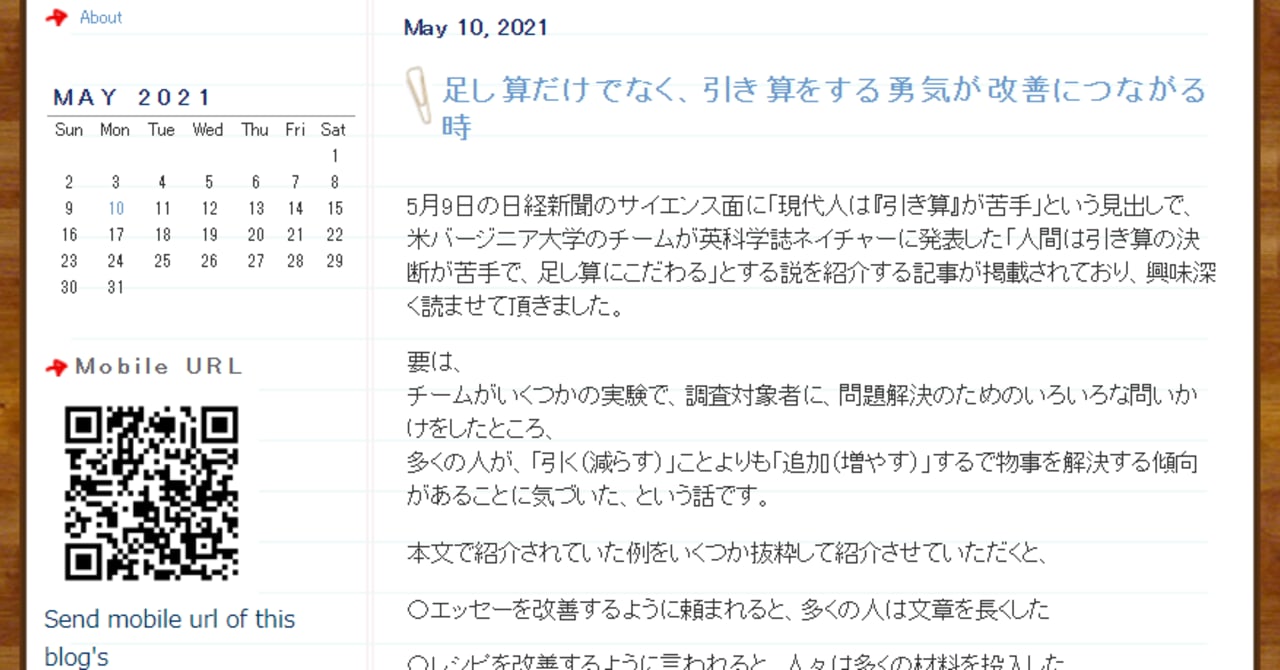 About
MAY 2021
Sun Mon Tue Wed Thu Fri Sat
1
2 3 4 5 6 7 8
9 10 11 12 13 14 15
16 17 18 19 20 21 22
23 24 25 26 27 28 29
30 31
Mobile URL
Send mobile url of this
blog's
May 10, 2021
足し算だけでなく、引き算をする勇気が改善につながる
時
5月9日の日経新聞のサイエンス面に「現代人は『引き算』が苦手」という見出しで、
米バージニア大学のチームが英科学誌ネイチャーに発表した「人間は引き算の決
断が苦手で、足し算にこだわる」とする説を紹介する記事が掲載されており、興味深
く読ませて頂きました。
要は、
チームがいくつかの実験で、調査対象者に、問題解決のためのいろいろな問いか
けをしたところ、
多くの人が、「引く（減らす）」ことよりも「追加（増やす）」するで物事を解決する傾向
があることに気づいた、という話です。
本文で紹介されていた例をいくつか抜粋して紹介させていただくと、
○エッセーを改善するように頼まれると、多くの人は文章を長くした
○レシピを改善するように言われると、人々は多くの材料を投入した